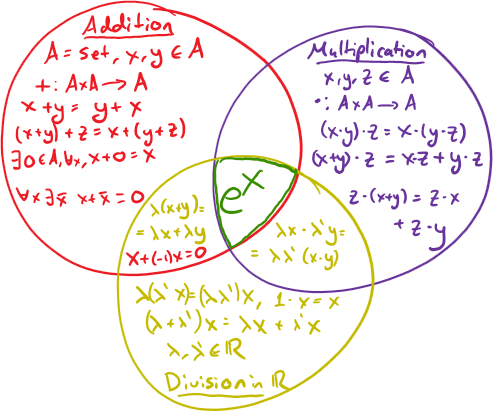 Addition
A = set, x, y ∈ A
+: A×A → A
x+y = y+x
(x+y)+z = x+(y+z)
∃0∈A, ∀x, x+0=x
∀x ∃x̄ x+x̄=0
Multiplication
x, y, z ∈ A
·: A×A → A
(x·y)·z = x·(y·z)
(x+y)·z = x·z+y·z
z·(x+y) = z·x
+ z·y
e^x
λ(x+y)=
= λx+λy
x+(-1)x=0
λx·λ'y=
= λλ'(x·y)
λ(λ'x)=(λλ')x, 1·x=x
(λ+λ')x = λx+λ'x
λ, λ' ∈ ℝ
Division in ℝ